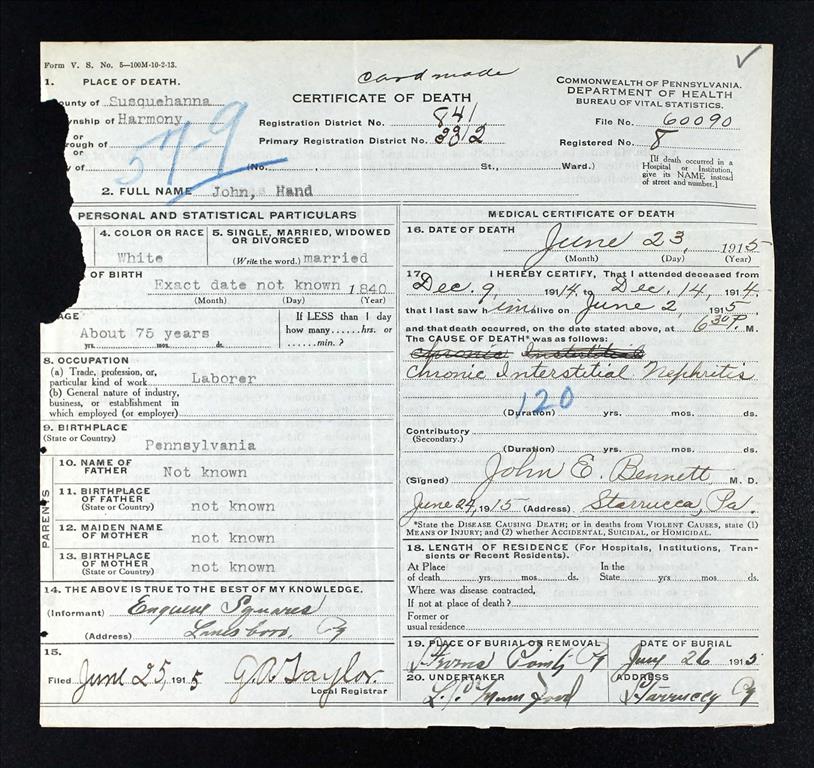 Form V. S. No. 5—100M-10-2-13.
card made
1. PLACE OF DEATH.
ounty of Susquehanna
wnship of Harmony
or
rough of
or
y of
579
(No. , St., Ward.)
CERTIFICATE OF DEATH
Registration District No. 841
Primary Registration District No. 3312
COMMONWEALTH OF PENNSYLVANIA.
DEPARTMENT OF HEALTH
BUREAU OF VITAL STATISTICS.
File No. 60090
Registered No. 8
[If death occurred in a
Hospital or Institution,
give its NAME instead
of street and number.]
2. FULL NAME John, Hand
PERSONAL AND STATISTICAL PARTICULARS
4. COLOR OR RACE
White
5. SINGLE, MARRIED, WIDOWED
OR DIVORCED
(Write the word.) married
OF BIRTH
Exact date not known 1840
(Month) (Day) (Year)
AGE
About 75 years
yrs. mos. ds.
If LESS than 1 day
how many......hrs. or
......min.?
8. OCCUPATION
(a) Trade, profession, or,
particular kind of work Laborer
(b) General nature of industry,
business, or establishment in
which employed (or employer)
9. BIRTHPLACE
(State or Country)
Pennsylvania
PARENTS
10. NAME OF
FATHER Not known
11. BIRTHPLACE
OF FATHER
(State or Country) not known
12. MAIDEN NAME
OF MOTHER not known
13. BIRTHPLACE
OF MOTHER
(State or Country) not known
14. THE ABOVE IS TRUE TO THE BEST OF MY KNOWLEDGE.
(Informant) Squares
(Address) Lanesboro,
15.
Filed June 25, 1915 G.A. Taylor
Local Registrar
MEDICAL CERTIFICATE OF DEATH
16. DATE OF DEATH
June 23, 1915
(Month) (Day) (Year)
17. I HEREBY CERTIFY, That I attended deceased from
Dec. 9, 1914 to Dec. 14, 1914.
that I last saw him alive on June 2, 1915.
and that death occurred, on the date stated above, at 6 30 P. M.
The CAUSE OF DEATH* was as follows:
Chronic
Chronic Interstitial Nephritis
120
(Duration) yrs. mos. ds.
Contributory
(Secondary.)
(Duration) yrs. mos. ds.
(Signed) John E. Bennett M. D.
June 24, 1915 (Address) Starrucca, Pa.
*State the DISEASE CAUSING DEATH; or in deaths from VIOLENT CAUSES, state (1)
MEANS OF INJURY; and (2) whether ACCIDENTAL, SUICIDAL, or HOMICIDAL.
18. LENGTH OF RESIDENCE (For Hospitals, Institutions, Tran-
sients or Recent Residents).
At Place In the
of death yrs. mos. ds. State yrs. mos. ds.
Where was disease contracted,
If not at place of death?
Former or
usual residence
19. PLACE OF BURIAL OR REMOVAL
Point,
DATE OF BURIAL
26 1915
20. UNDERTAKER
ADDRESS
Starrucca